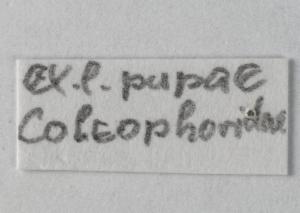 ex.l. pupae
Coleophoridae